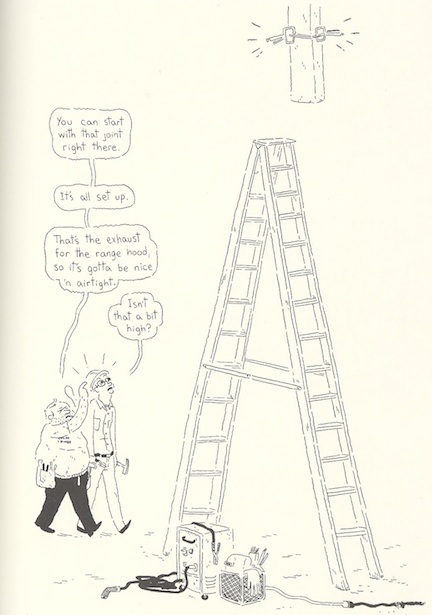 You can start
with that joint
right there.
It's all set up.
That's the exhaust
for the range hood,
so it's gotta be nice
'n airtight.
Isn't
that a bit
high?